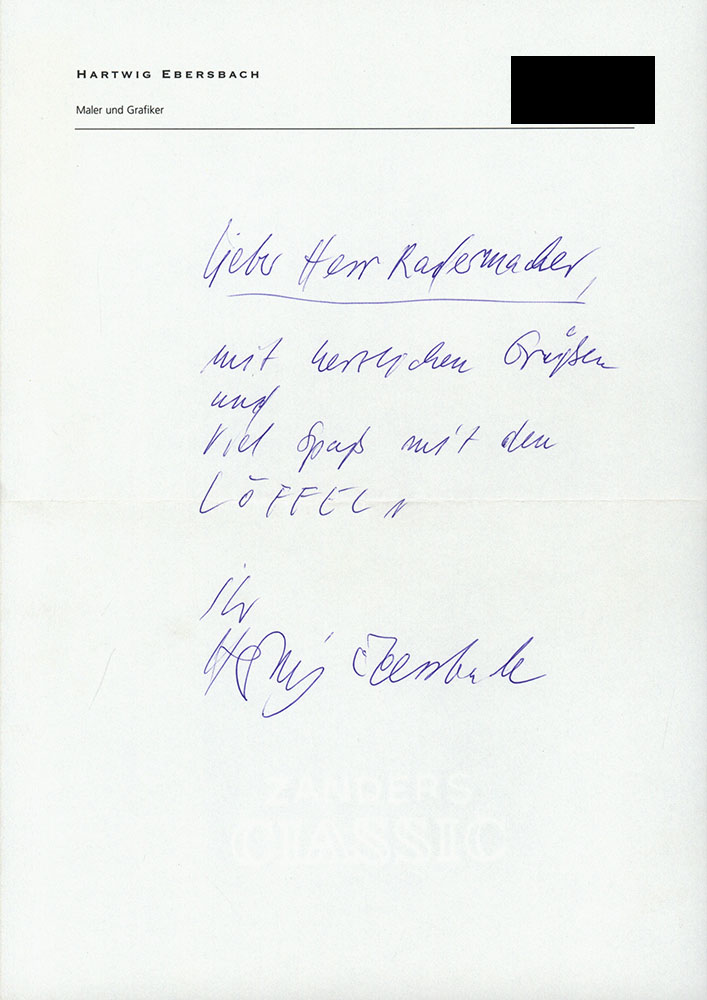 HARTWIG EBERSBACH
Maler und Grafiker
Lieber Herr Radermacher,
mit herzlichen Grüßen
und
viel Spaß mit den
LÖFFELN
Ihr
Hartwig Ebersbach
ZANDERS
CLASSIC